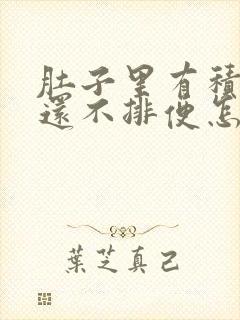 肚子里有積
還不排便怎
葉芝真己